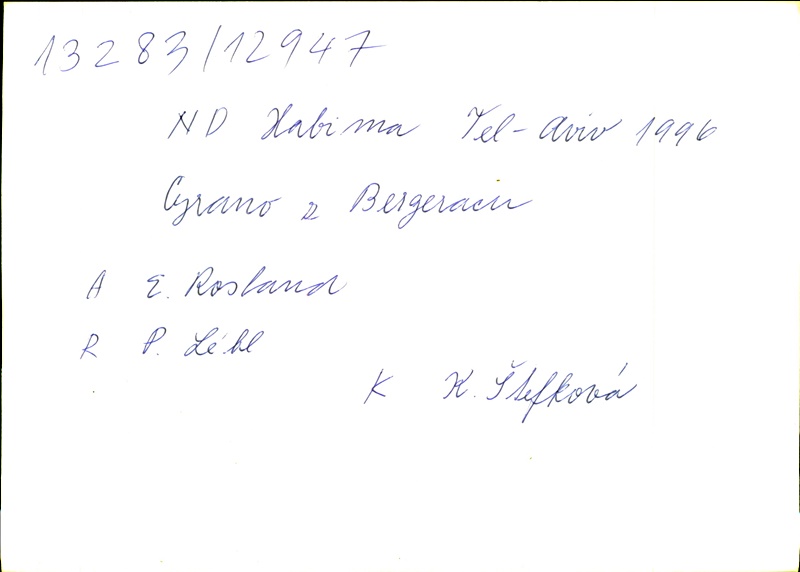 13283/12947
ND Habima Tel-Aviv 1996
Cyrano z Bergeracu
A E. Rostand
R P. Lébl
K K. Štefková